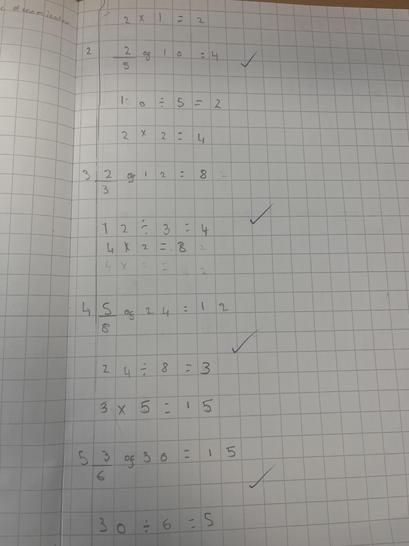 2 × 1 = 2
2 2/5 of 10 = 4
10 ÷ 5 = 2
2 × 2 = 4
3 2/3 of 12 = 8
12 ÷ 3 = 4
4 × 2 = 8
4 5/8 of 24 = 12
24 ÷ 8 = 3
3 × 5 = 15
5 3/6 of 30 = 15
30 ÷ 6 = 5